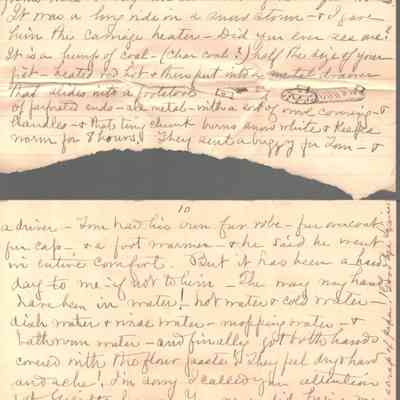 It was a long ride in a snow storm - & I gave
him the Carriage heater - Did you ever see one?
It is a lump of coal - (char coal?) half the size of your
fist - heated red hot & then put into a metal drawer
that slides into a footstove
of perforated ends - all metal - with a sort of wool covering - &
handles - & that tiny chunk burns snow white & keeps
warm for 8 hours! They sent a buggy for Tom - &
10
a driver - Tom had his own fur robe - fur overcoat
fur cap - & a foot warmer - & he said he went
in entire comfort. But it has been a hard
day to me if not to him - The way my hands
have been in water! hot water & cold water -
dish water & rinse water - mopping water - &
bathroom water - and finally got both hands
covered with the flour paste! They feel dry & hard
and ache! I'm sorry I called your attention